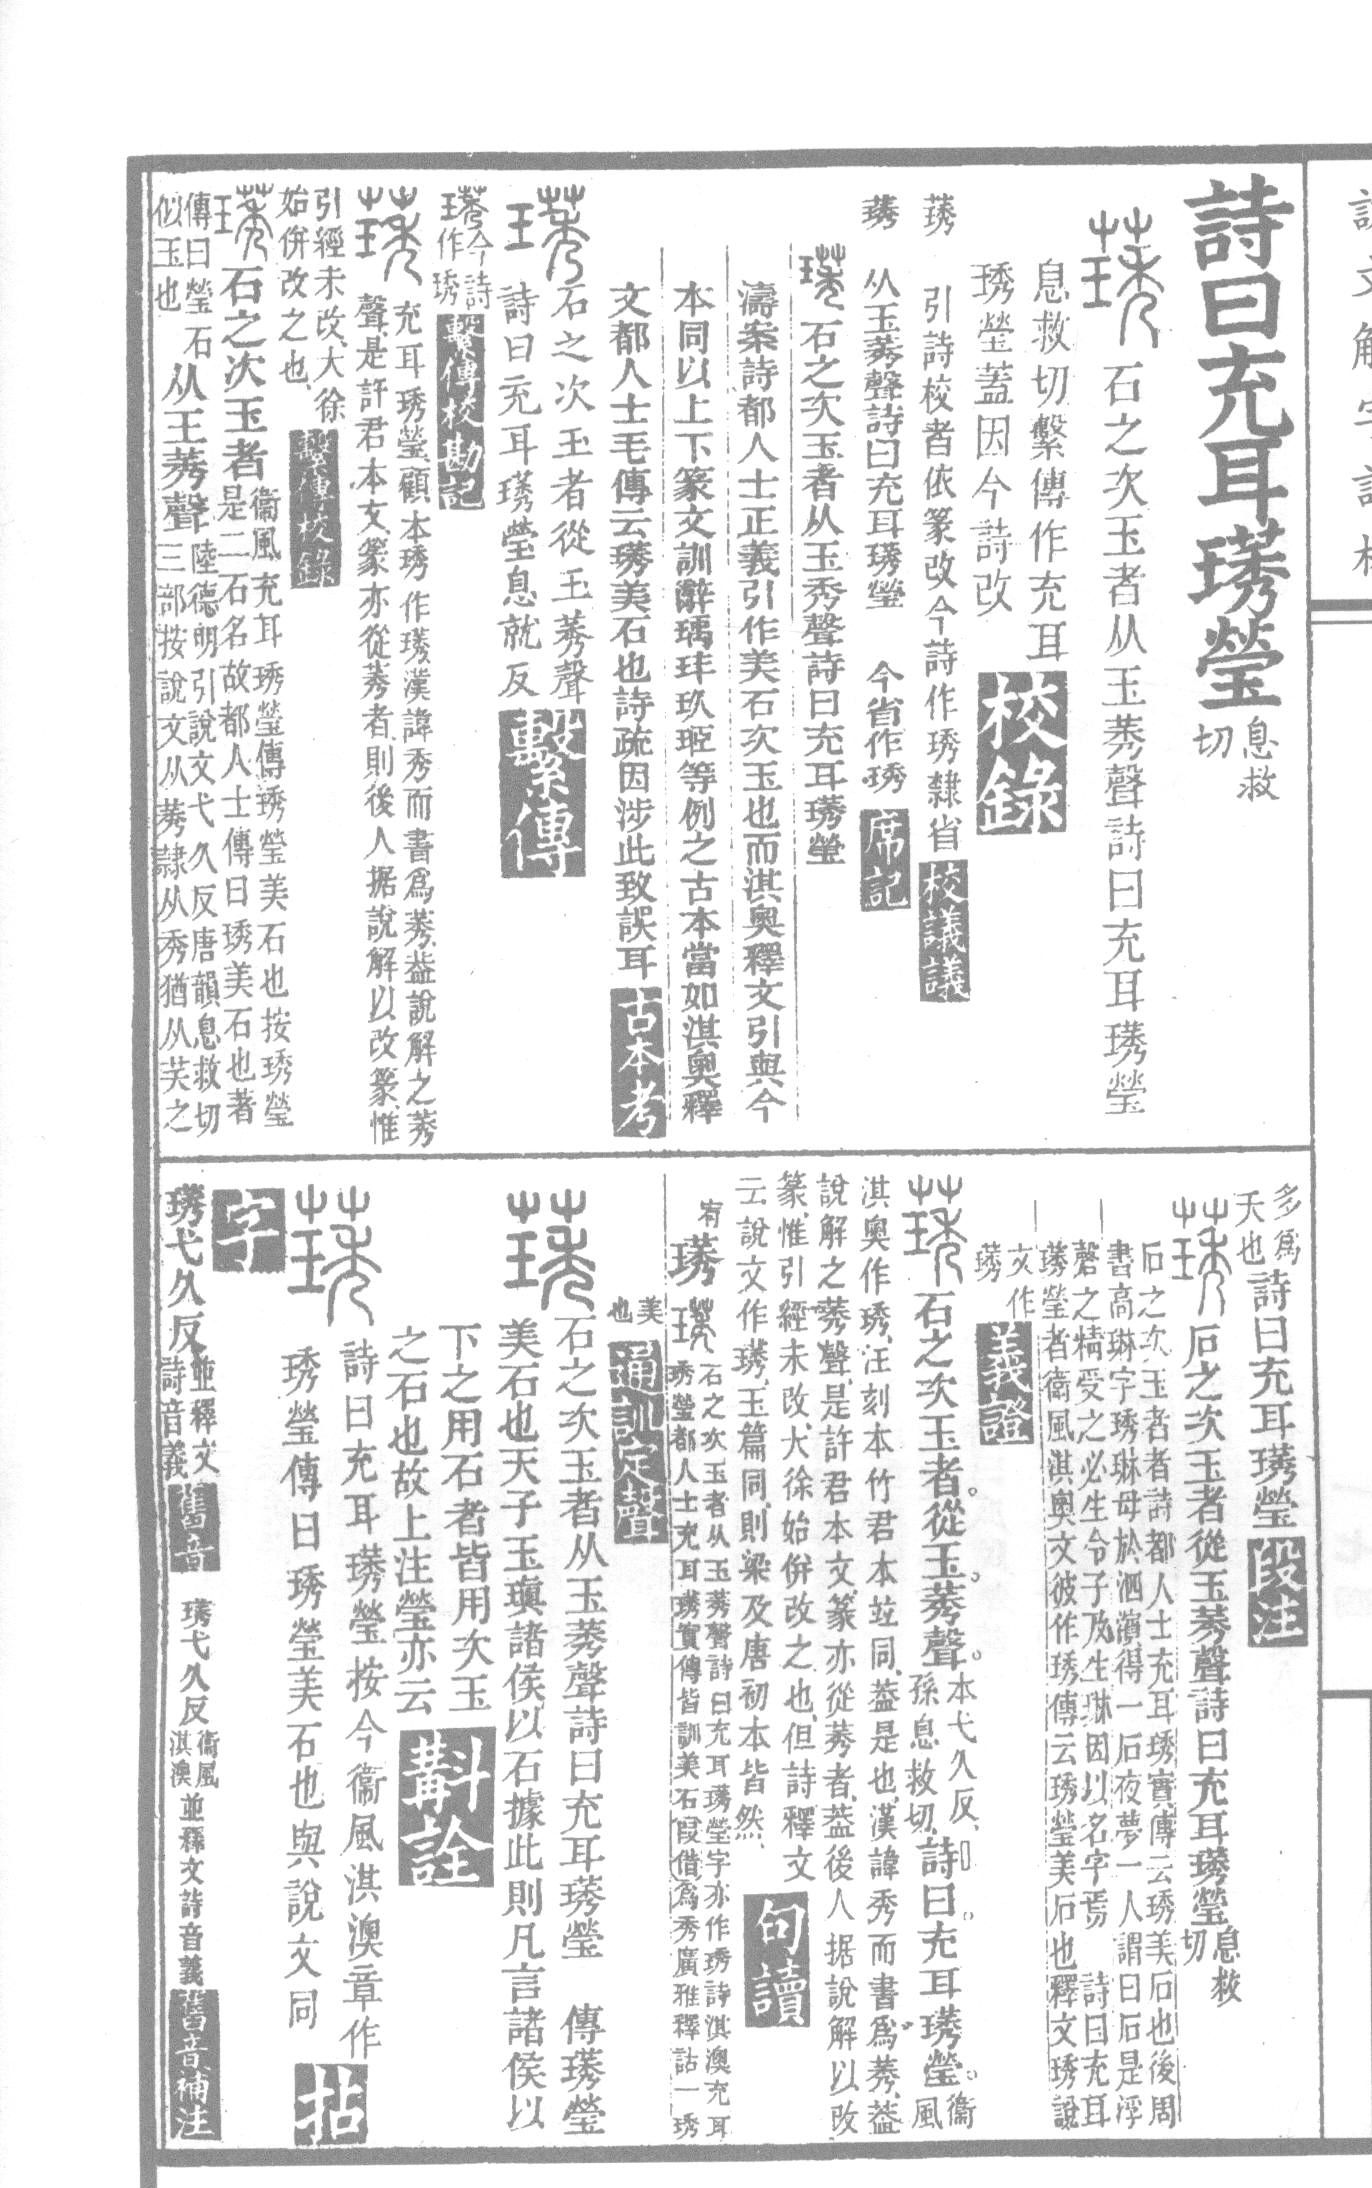 詩曰充耳璓瑩息救切
石之次玉者从玉莠聲詩曰充耳璓瑩
息救切繫傳作充耳
琇瑩蓋因今詩改 校錄
璓 引詩校者依篆改今詩作琇隸省 校議議
璓 从玉莠聲詩曰充耳璓瑩 今省作琇 席記
石之次玉者从玉秀聲詩曰充耳璓瑩
濤案詩都人士正義引作美石次玉也而淇奧釋文引與今
本同以上下篆文訓辭瑀玤玖㺿等例之古本當如淇奧釋
文都人士毛傳云璓美石也詩疏因涉此致誤耳 古本考
石之次玉者從玉莠聲
詩曰充耳璓瑩息就反 繫傳
璓今詩
作琇 繫傳校勘記
充耳琇瑩顧本琇作璓漢諱秀而書爲莠葢說解之莠
聲是許君本文篆亦從莠者則後人据說解以改篆惟
引經未改大徐
始併改之也 繫傳校錄
石之次玉者衞風充耳琇瑩傳琇瑩美石也按琇瑩
是二石名故都人士傳曰琇美石也著
傳曰瑩石
似玉也从王莠聲陸德明引說文弋久反唐韻息救切
三部按說文从莠隸从秀猶从芺之
多爲
天也詩曰充耳璓瑩 段注
石之次玉者從玉莠聲詩曰充耳璓瑩息救切
石之次玉者者詩都人士充耳琇實傳云琇美石也後周
書高琳字琇琳母於泗濱得一石夜夢一人謂曰石是浮
磬之精受之必生令子及生琳因以名字焉 詩曰充耳
璓瑩者衛風淇奧文彼作琇傳云琇瑩美石也釋文琇說
文作
璓 義證
石之次玉者從玉莠聲本弋久反孫息救切詩曰充耳璓瑩衞風
淇奧作琇汪刻本竹君本竝同葢是也漢諱秀而書爲莠葢
說解之莠聲是許君本文篆亦從莠者葢後人据說解以改
篆惟引經未改大徐始併改之也但詩釋文
云說文作璓玉篇同則梁及唐初本皆然 句讀
璓 石之次玉者从玉莠聲詩曰充耳璓瑩字亦作琇詩淇澳充耳
琇瑩都人士充耳璓實傳皆訓美石叚借爲秀廣雅釋詁一琇
美
也 通訓定聲
石之次玉者从玉莠聲詩曰充耳璓瑩 傳璓瑩
美石也天子玉瑱諸侯以石據此則凡言諸侯以
下之用石者皆用次玉
之石也故上注瑩亦云 斠詮
詩曰充耳璓瑩按今衞風淇澳章作
琇瑩傳曰琇瑩美石也與說文同 拈
字
璓弋久反並釋文
詩音義 舊音 璓弋久反衞風
淇澳並釋文詩音義 舊音補注